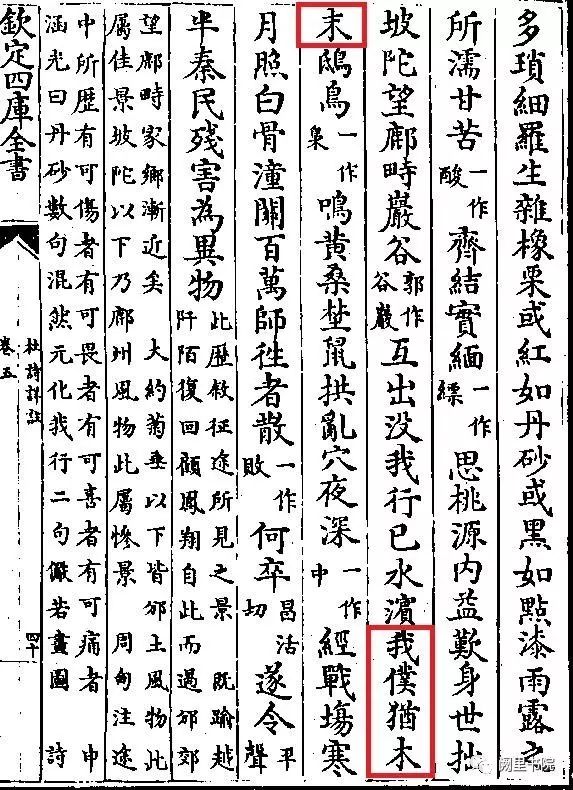 多瑣細羅生雜橡栗或紅如丹砂或黑如點漆雨露之
所濡甘苦一作酸齊結實緬一作思桃源内益歎身世拙
坡陀望鄜畤巖谷郭作谷巖互出没我行已水濱我僕猶木
末鴟鳥一作梟鳴黄桑埜鼠拱亂穴夜深一作中經戰塲寒
月照白骨潼關百萬師徃者散一作敗何卒昌活切遂令平聲
半秦民殘害為異物此歴敘征途所見之景 既踰越
阡陌復回顧鳳翔自此而過邠郊
望鄜畤家鄉漸近矣 大約菊垂以下皆邠土風物此
屬佳景坡陀以下乃鄜州風物此屬慘景 周甸注途
中所歴有可傷者有可畏者有可喜者有可痛者 申
涵光曰丹砂數句混然元化我行二句儼若畫圖 詩
欽定四庫全書
杜詩詳註
卷五
四十
阙里书院